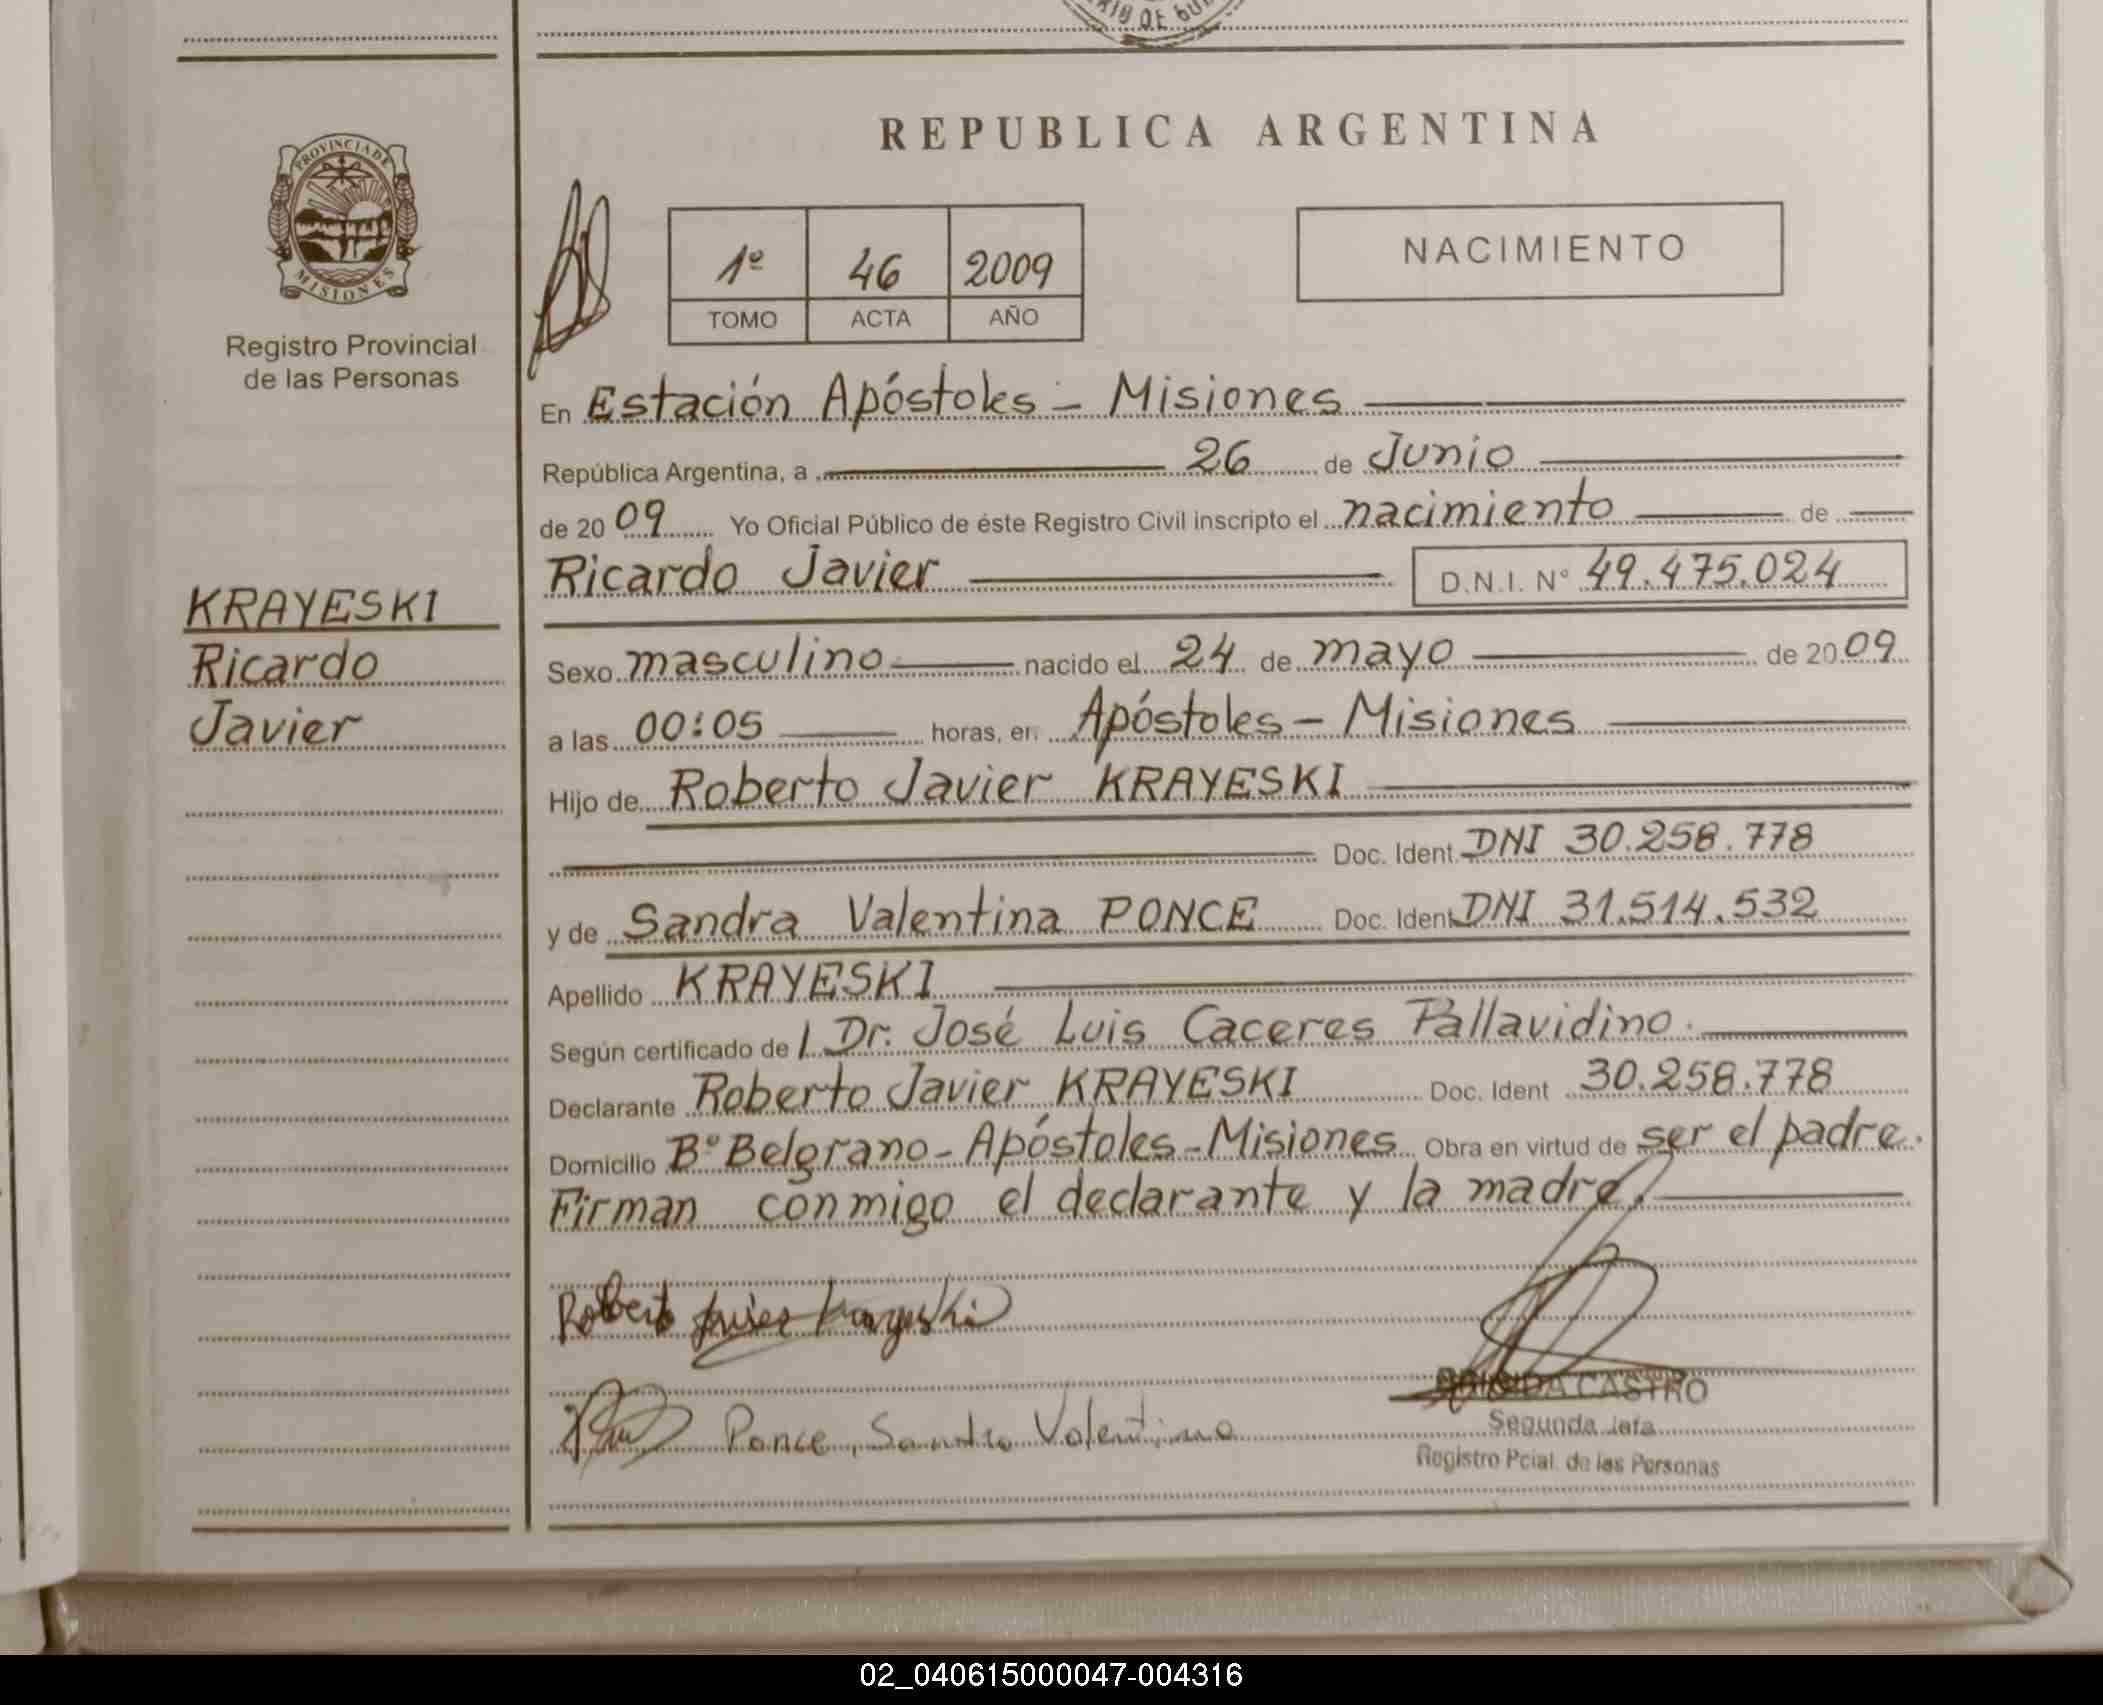 RIO DE GU
REPUBLICA ARGENTINA
PROVINCIA DE
MISIONES
Registro Provincial
de las Personas
1º 46 2009
TOMO ACTA AÑO
NACIMIENTO
En Estación Apóstoles - Misiones
República Argentina, a 26 de Junio
de 2009 Yo Oficial Público de éste Registro Civil inscripto el nacimiento de
Ricardo Javier D.N.I. Nº 49.475.024
KRAYESKI
Ricardo
Javier
Sexo masculino nacido el 24 de mayo de 2009
a las 00:05 horas, en Apóstoles - Misiones
Hijo de Roberto Javier KRAYESKI
Doc. Ident. DNI 30.258.778
y de Sandra Valentina PONCE Doc. Ident DNI 31.514.532
Apellido KRAYESKI
Según certificado de l Dr. José Luis Caceres Pallavidino.
Declarante Roberto Javier KRAYESKI Doc. Ident 30.258.778
Domicilio Bº Belgrano - Apóstoles - Misiones Obra en virtud de ser el padre.
Firman conmigo el declarante y la madre.
Roberto Javier Krayeski
Ponce, Sandra Valentina
CASTRO
Segunda Jefa
Registro Pcial. de las Personas
02_040615000047-004316